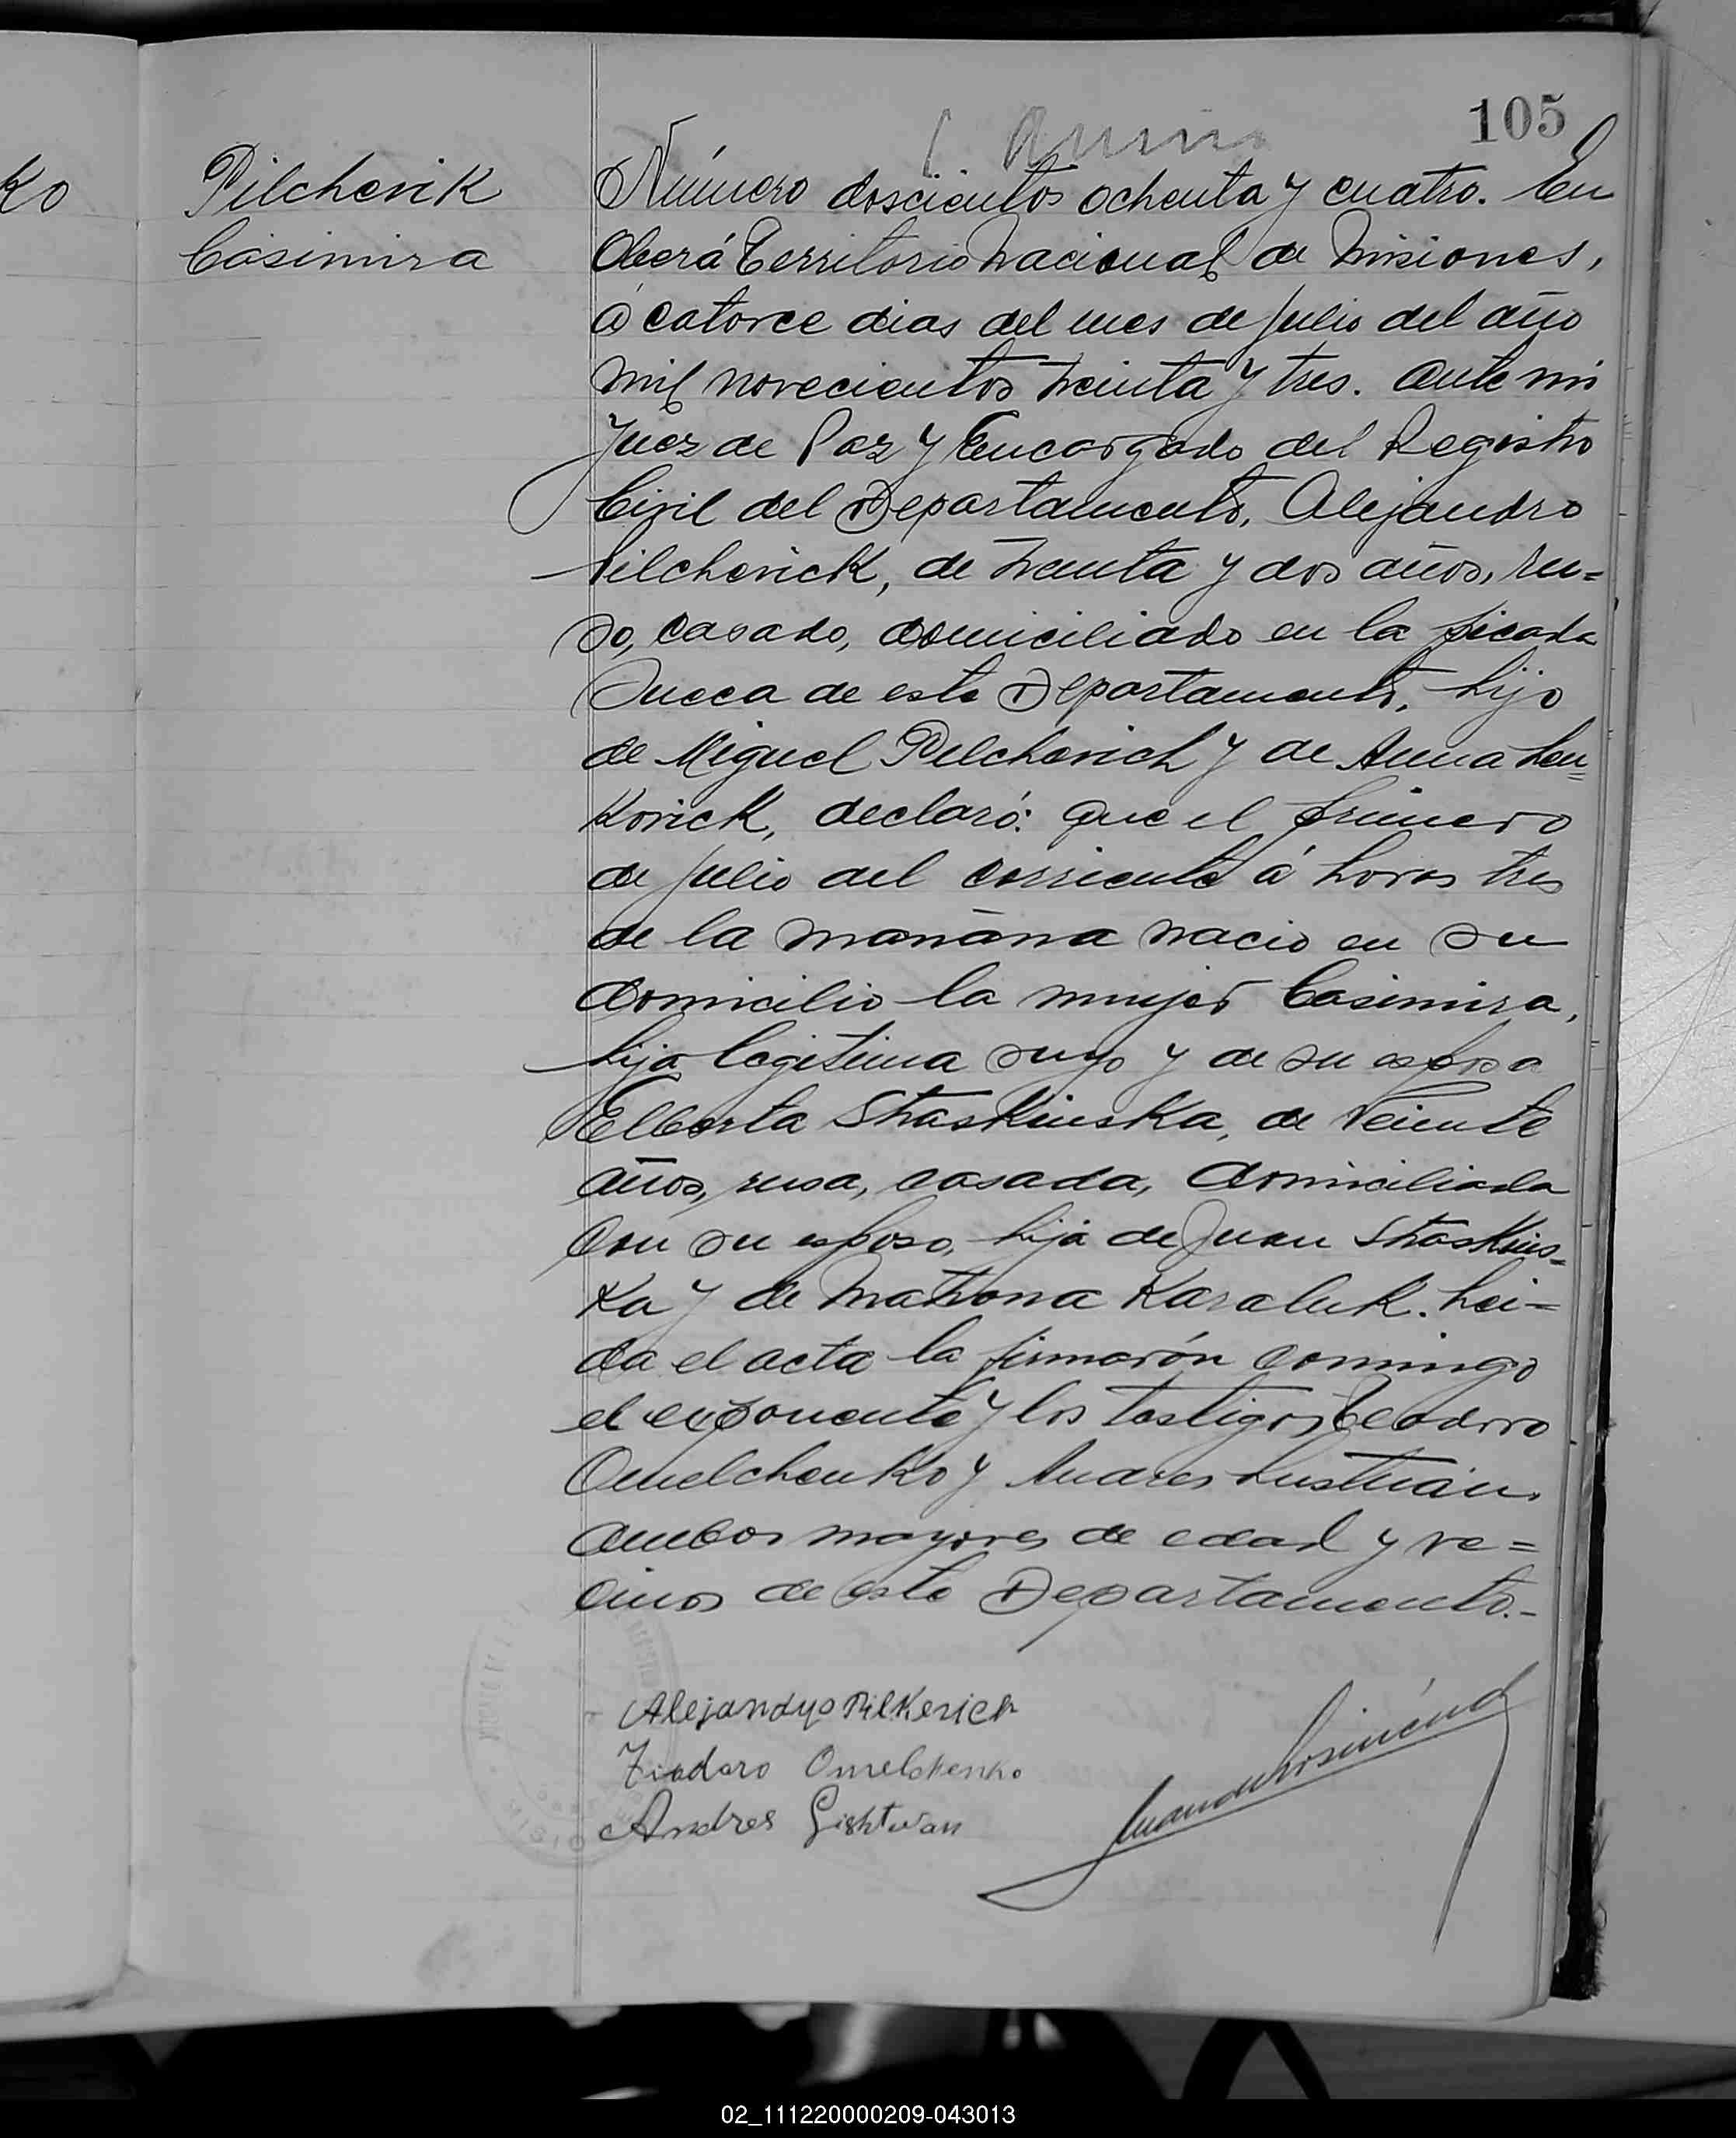 105
Pilchevik
Casimira
Número doscientos ochenta y cuatro. En
Oberá Territorio Nacional de Misiones,
á catorce dias del mes de Julio del año
mil novecientos treinta y tres. Ante mi
Juez de Paz y Encargado del Registro
Civil del Departamento, Alejandro
Pilchevick, de treinta y dos años, ru=
so, casado, domiciliado en la picada
Sueca de este Departamento, hijo
de Miguel Pilchevich y de Anna Leu=
kovick, declaró: que el primero
de Julio del corriente á horas tres
de la mañana nacio en su
domicilio la mujer Casimira,
hija legitima suya y de su esposa
Elberta Straskinska, de veinte
años, rusa, casada, domiciliada
con su esposo, hija de Juan Straskins=
ka y de Matrona Karaluk. Lei=
da el acta la firmarón conmigo
el exponente y los testigos Teodoro
Omelchenko y Andres Lustuan,
ambos mayores de edad y ve=
cinos de este Departamento.-
Alejandyo Pilkevich
Tiodoro Omelchenko
Andres Lishtvan
02_111220000209-043013